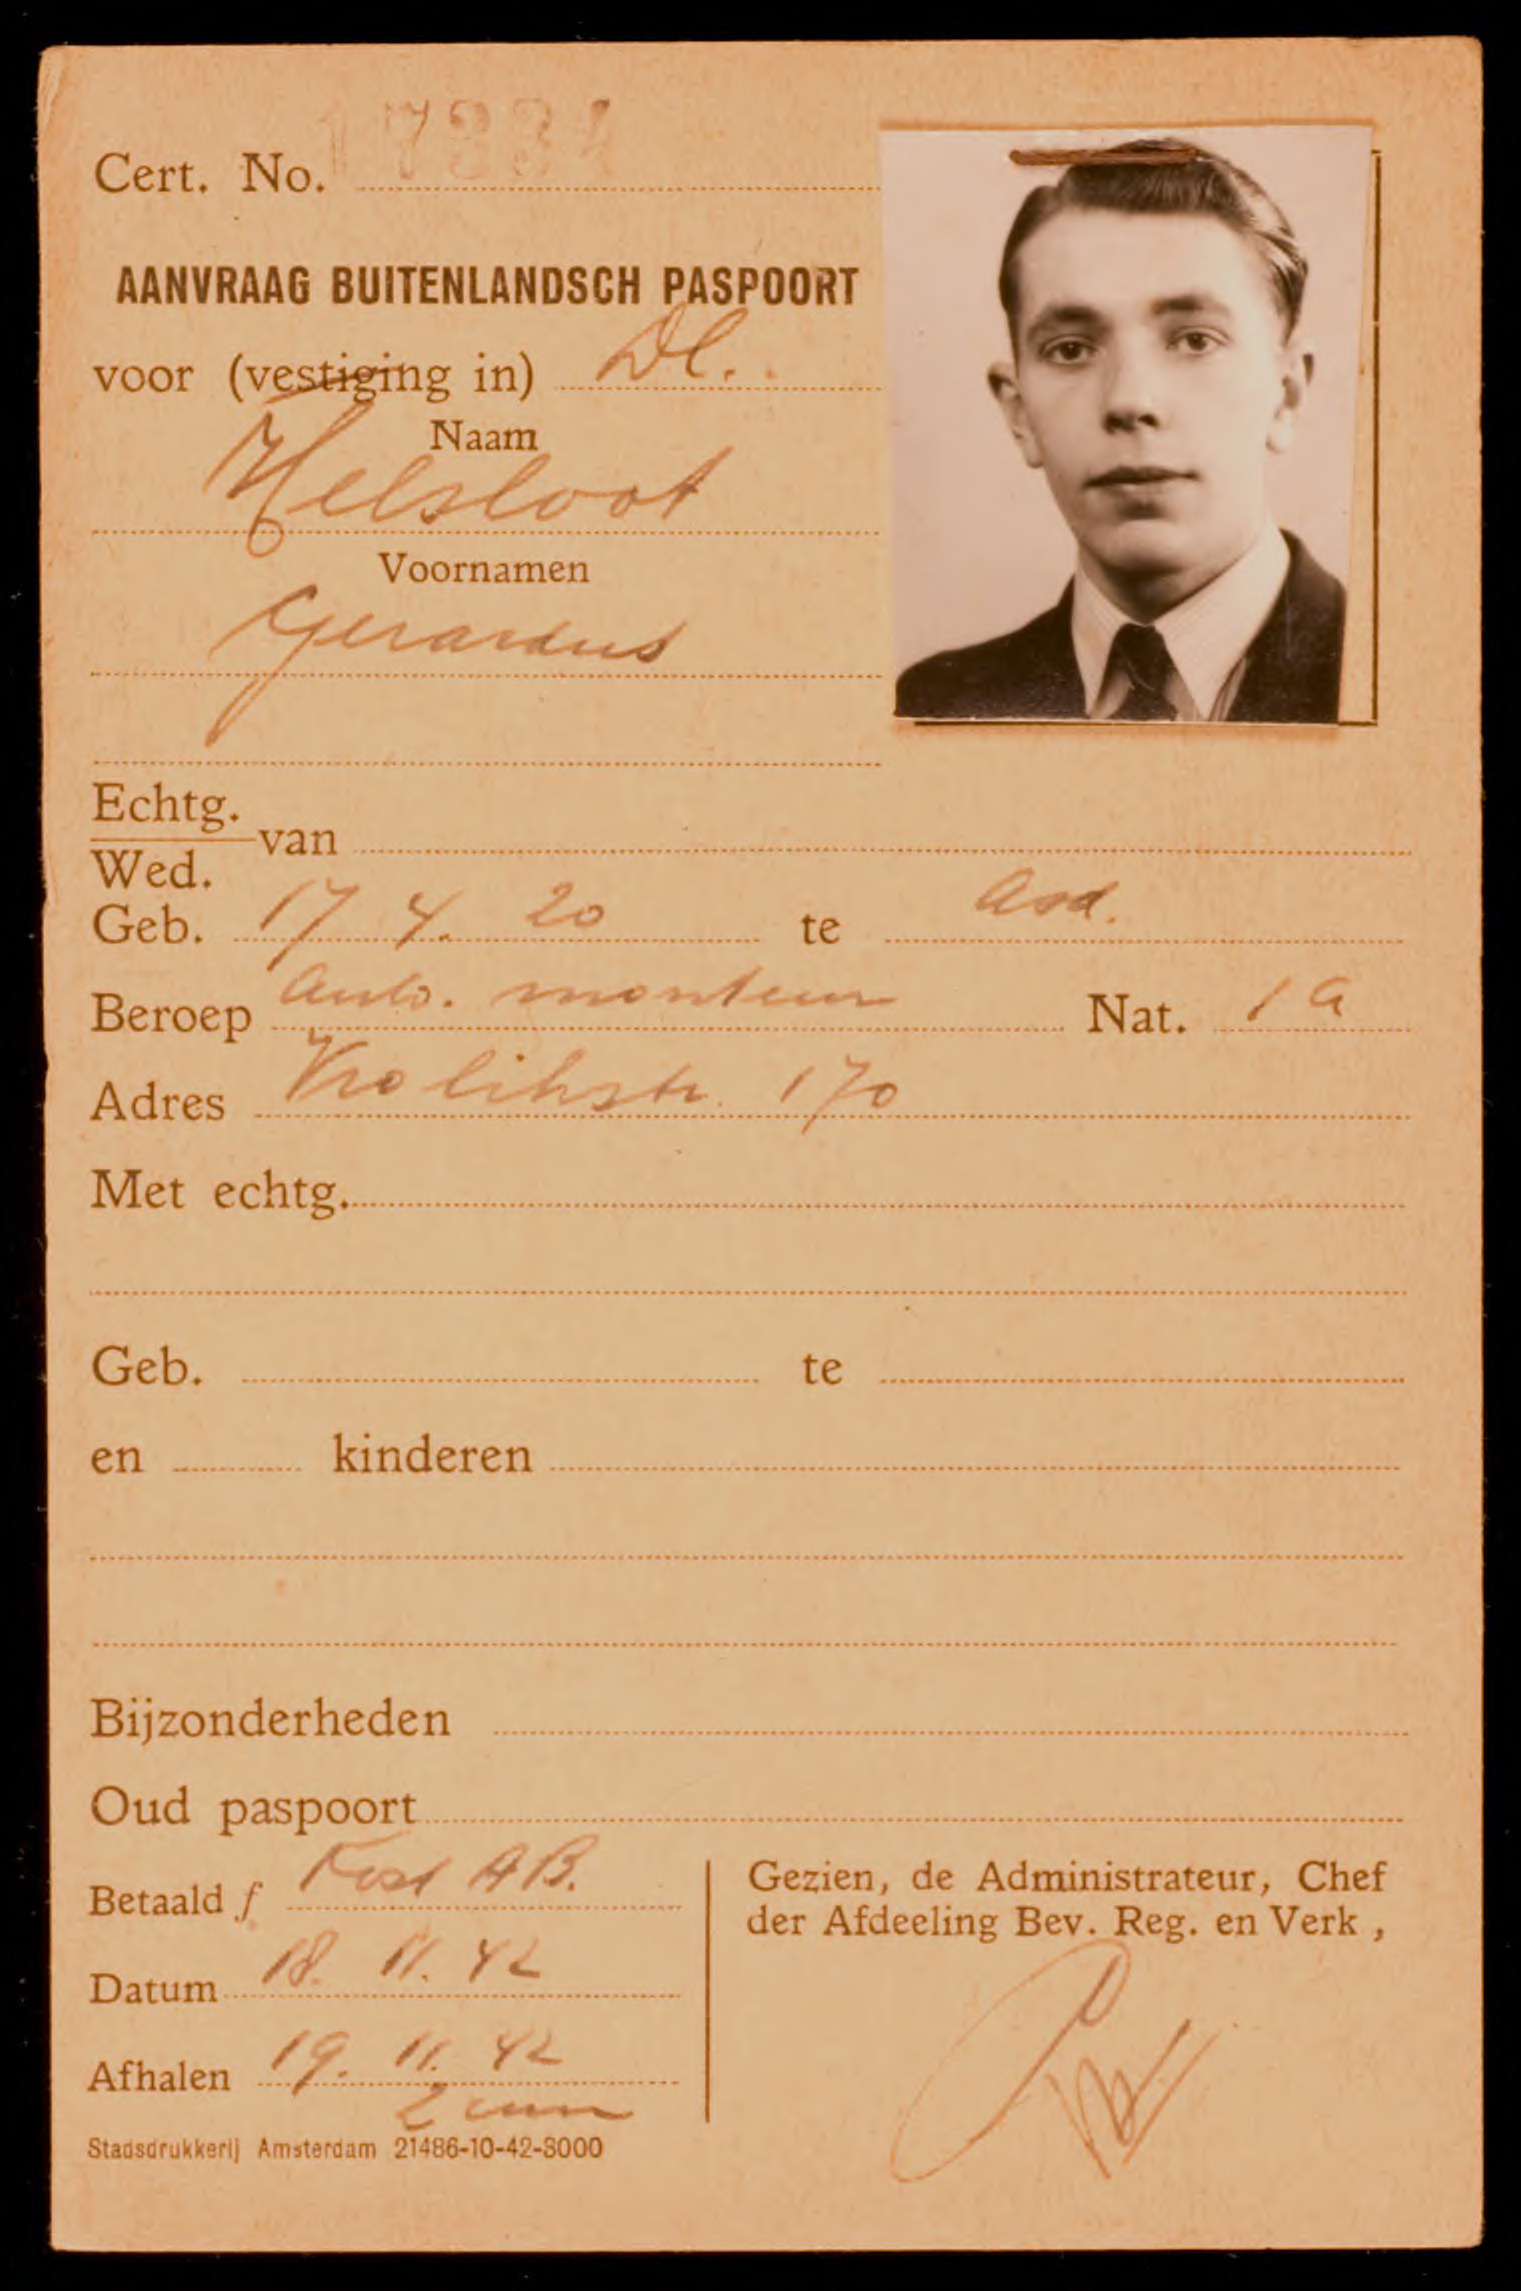 Cert. No. 17334
AANVRAAG BUITENLANDSCH PASPOORT
voor (vestiging in) Dl.
Naam
Helsloot
Voornamen
Gerardus
Echtg.
van
Wed.
Geb. 17 4. 20 te Asd.
Beroep auto. monteur Nat. 1a
Adres Vrolikstr. 170
Met echtg.
Geb. te
en kinderen
Bijzonderheden
Oud paspoort
Betaald f Kost AB.
Datum 18. 11. 42
Afhalen 19. 11. 42
2 uur
Gezien, de Administrateur, Chef
der Afdeeling Bev. Reg. en Verk,
Stadsdrukkerij Amsterdam 21486-10-42-3000